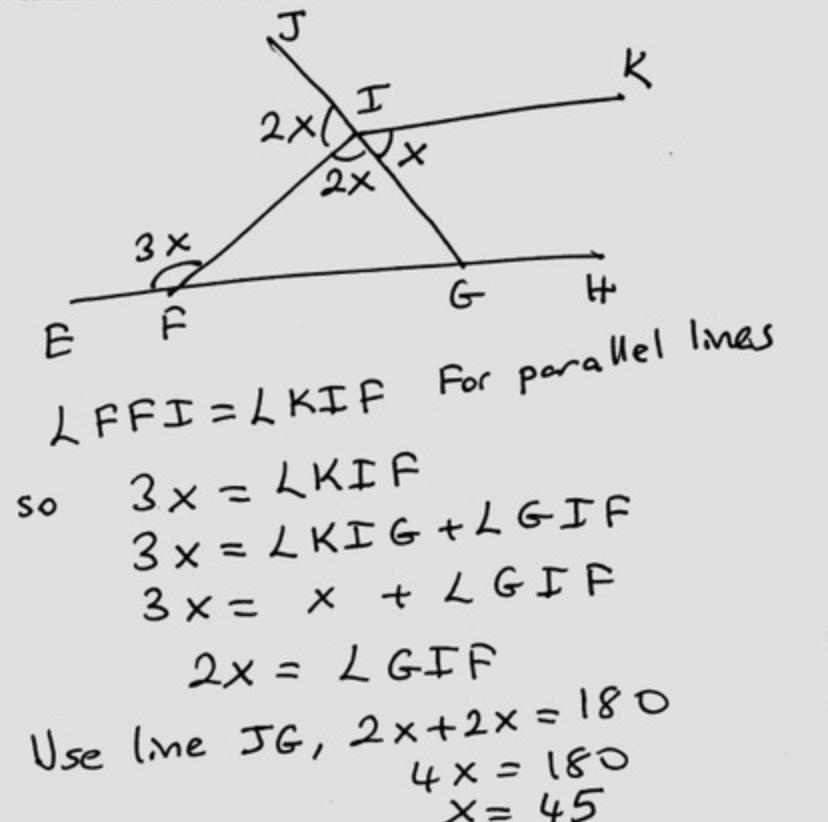 J
I
K
2x
x
2x
3x
E
F
G
H
∠FFI = ∠KIF For parallel lines
so 3x = ∠KIF
3x = ∠KIG + ∠GIF
3x = x + ∠GIF
2x = ∠GIF
Use line JG, 2x+2x = 180
4x = 180
x = 45